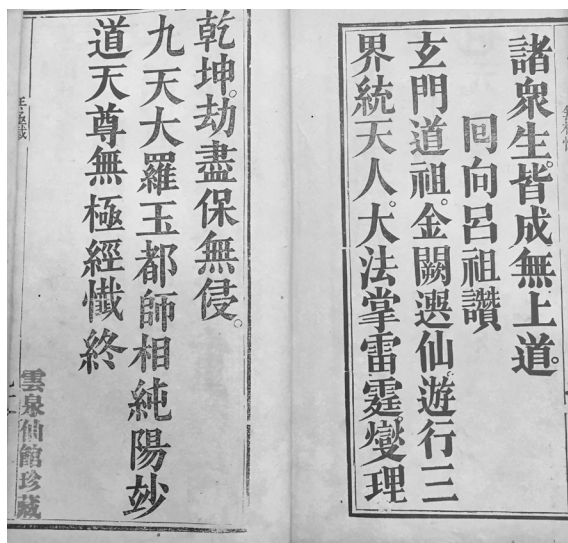 諸衆生。皆成無上道。
回向呂祖讚
玄門道祖。金闕選仙。遊行三
界統天人。大法掌雷霆。燮理
乾坤。劫盡保無侵。
九天大羅玉都師相純陽妙
道天尊無極經懺終
雲泉仙館珍藏